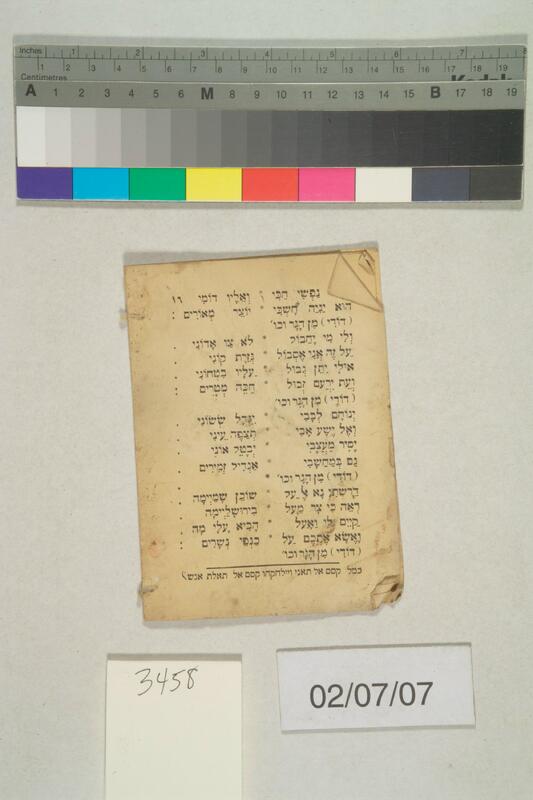 Inches 1 2 3 4 5 6 7 8
Centimetres 1 2 3 4 5 6 7 8 9 10 11 12 13 14 15 16 17 18 19
Kodak
A 1 2 3 4 5 6 M 8 9 10 11 12 13 14 15 B 17 18 19
נַפְשִׁי חַכִּי * וְאֵלָיו דּוֹמִי
הוּא יַגִּיהַּ חָשְׁכִּי * יוֹצֵר מְאוֹרִים :
( דּוֹדִי ) מִן הָנָּר וכו'
וְלִי מִי יַחְבּוֹל * לֹא צִוּ אֲדוֹנִי .
עַל זֶה אֲנִי אֶסְבּוֹל * גְּזֵרַת קוֹנִי .
אוּלַי יִתֵּן גְּבוּל * עָלָיו בִּטְחוֹנִי .
וְעֵת יִרְעַם זְבוּל * חַכֵּה מְטָרִים :
( דּוֹדִי ) מִן הָנָּר וכו'
יְנוּחַם לְבָבִי * יִגְדַּל שְׂשׂוֹנִי .
וְאֶל יֵשַׁע אָבִי * תְּצַפֶּה עֵינִי .
יָסִיר מַעֲצָבִי * יְבַטֵּל אוֹנִי .
גַּם בְּמַחְשָׁבִי * אַגְדִּיל זְמִירִים .
( דּוֹדִי ) מִן הָנָּר וכו'
דְּרָשַׁתִּי נָא אֶ עַל * שׁוֹכֵן שָׁמַיְמָה
רְאֵה כִּי צַר מַעַל * בִּירוּשָׁלַיְמָה
קַיֵּם לִי וְאַעַל * הָבִיא עָלַי מַה
וָאֶשָּׂא אֶתְכֶם עַל * כַּנְפֵי נְשָׁרִים :
( דּוֹדִי ) מִן הָנָּר וכו'
כמל' קסם אל תאני ויילחקהו קסם אל תאלת אנש'
3458
02/07/07